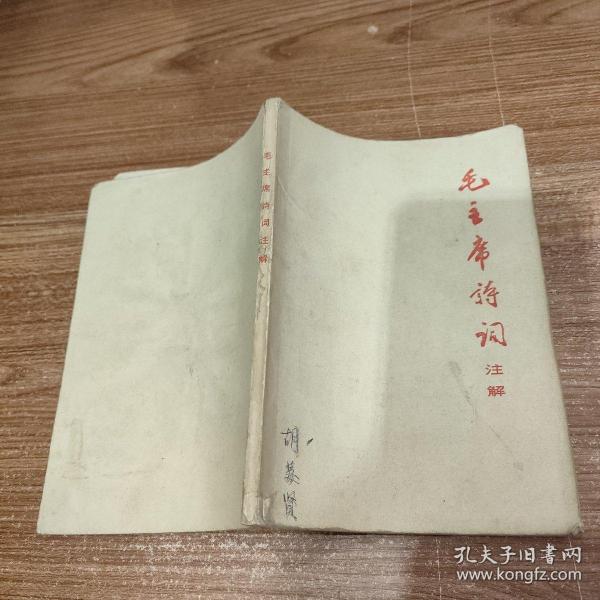 毛主席詩词
注解
毛主席诗词注解
胡慕贤
孔夫子旧书网
www.kongfz.com